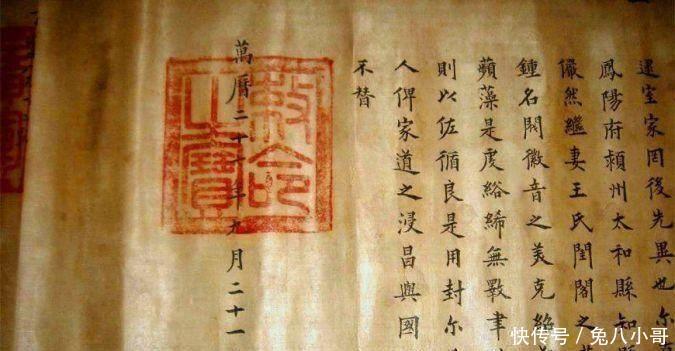 室家罔後先異也尔
鳳陽府潁州太和縣知
儼然繼妻王氏閨閣之
鍾名閥徽音之美克
蘋藻是虔綌絺無斁聿
則以佐循良是用封尔
人俾家道之浸昌與國
不替
敕命之寶
萬曆二十一年九月二十一
快传号 / 兔八小哥